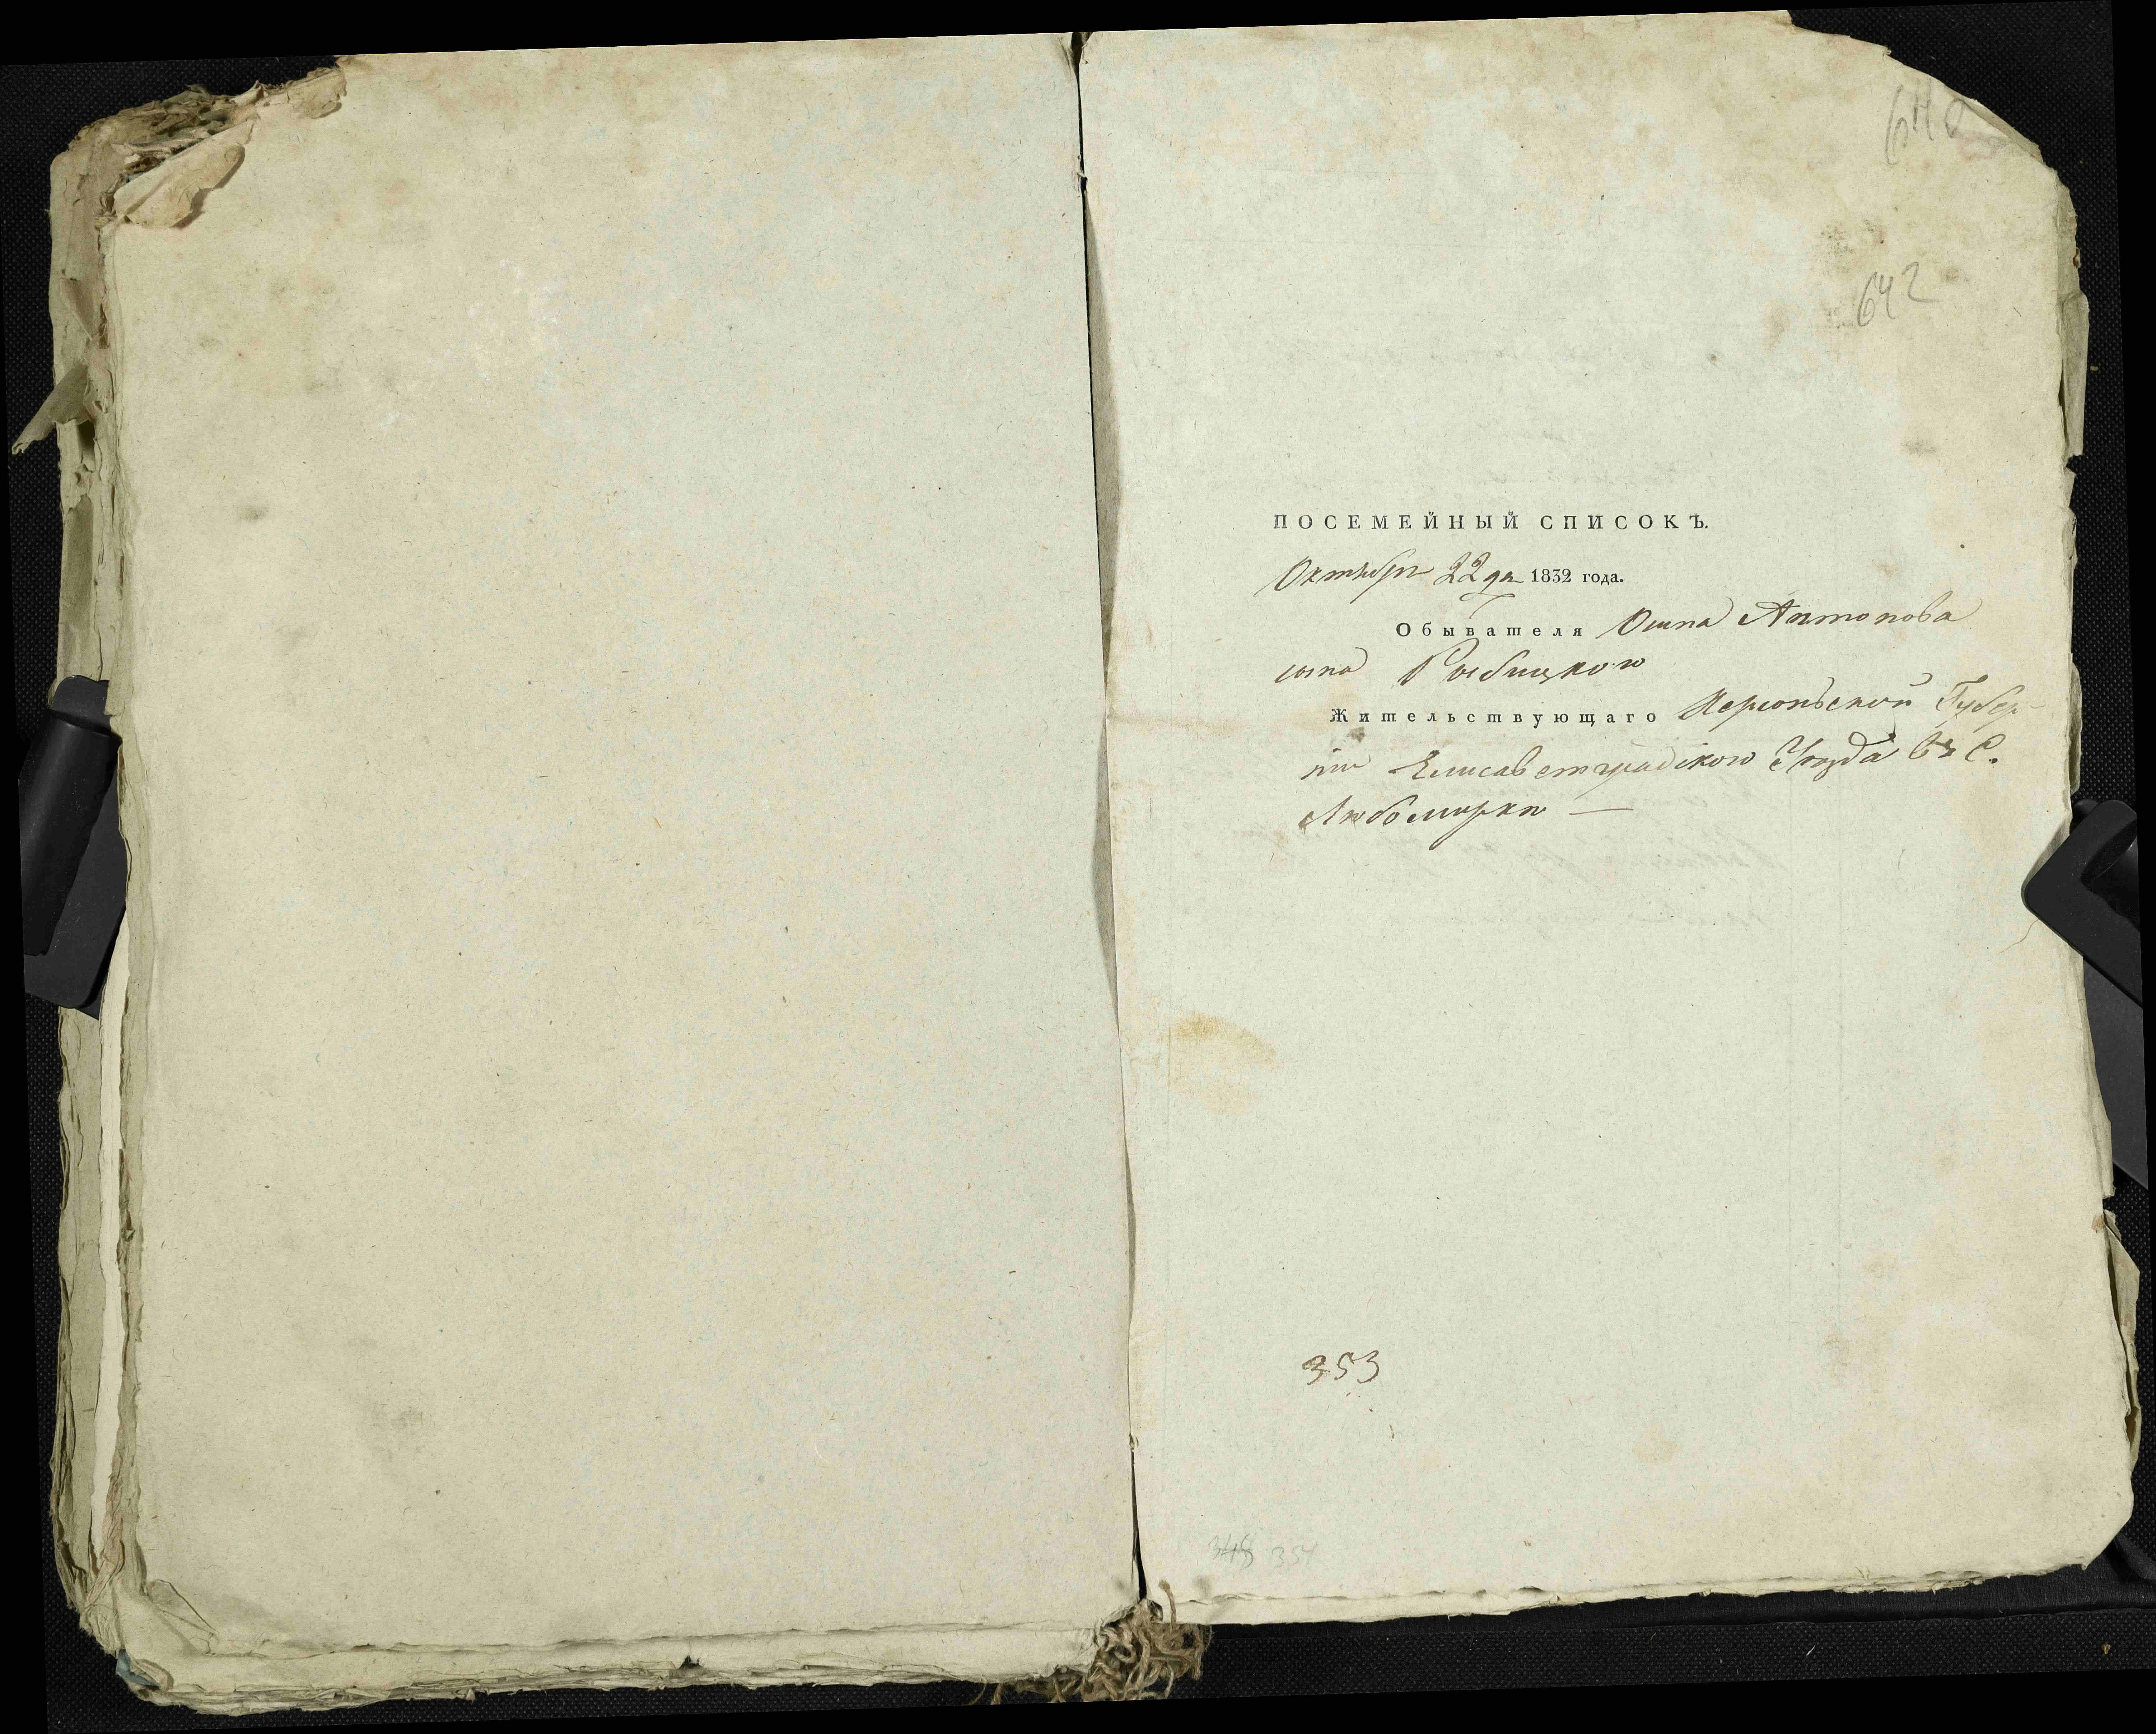 640
642
ПОСЕМЕЙНЫЙ СПИСОКЪ.
Октября 22 дня 1832 года.
Обывателя Осипа Антонова
сына Рыбицкого
Жительствующаго Херсонской Губер-
ніи Елисаветградского Уезда въ С.
Любомирки —
353
348 354